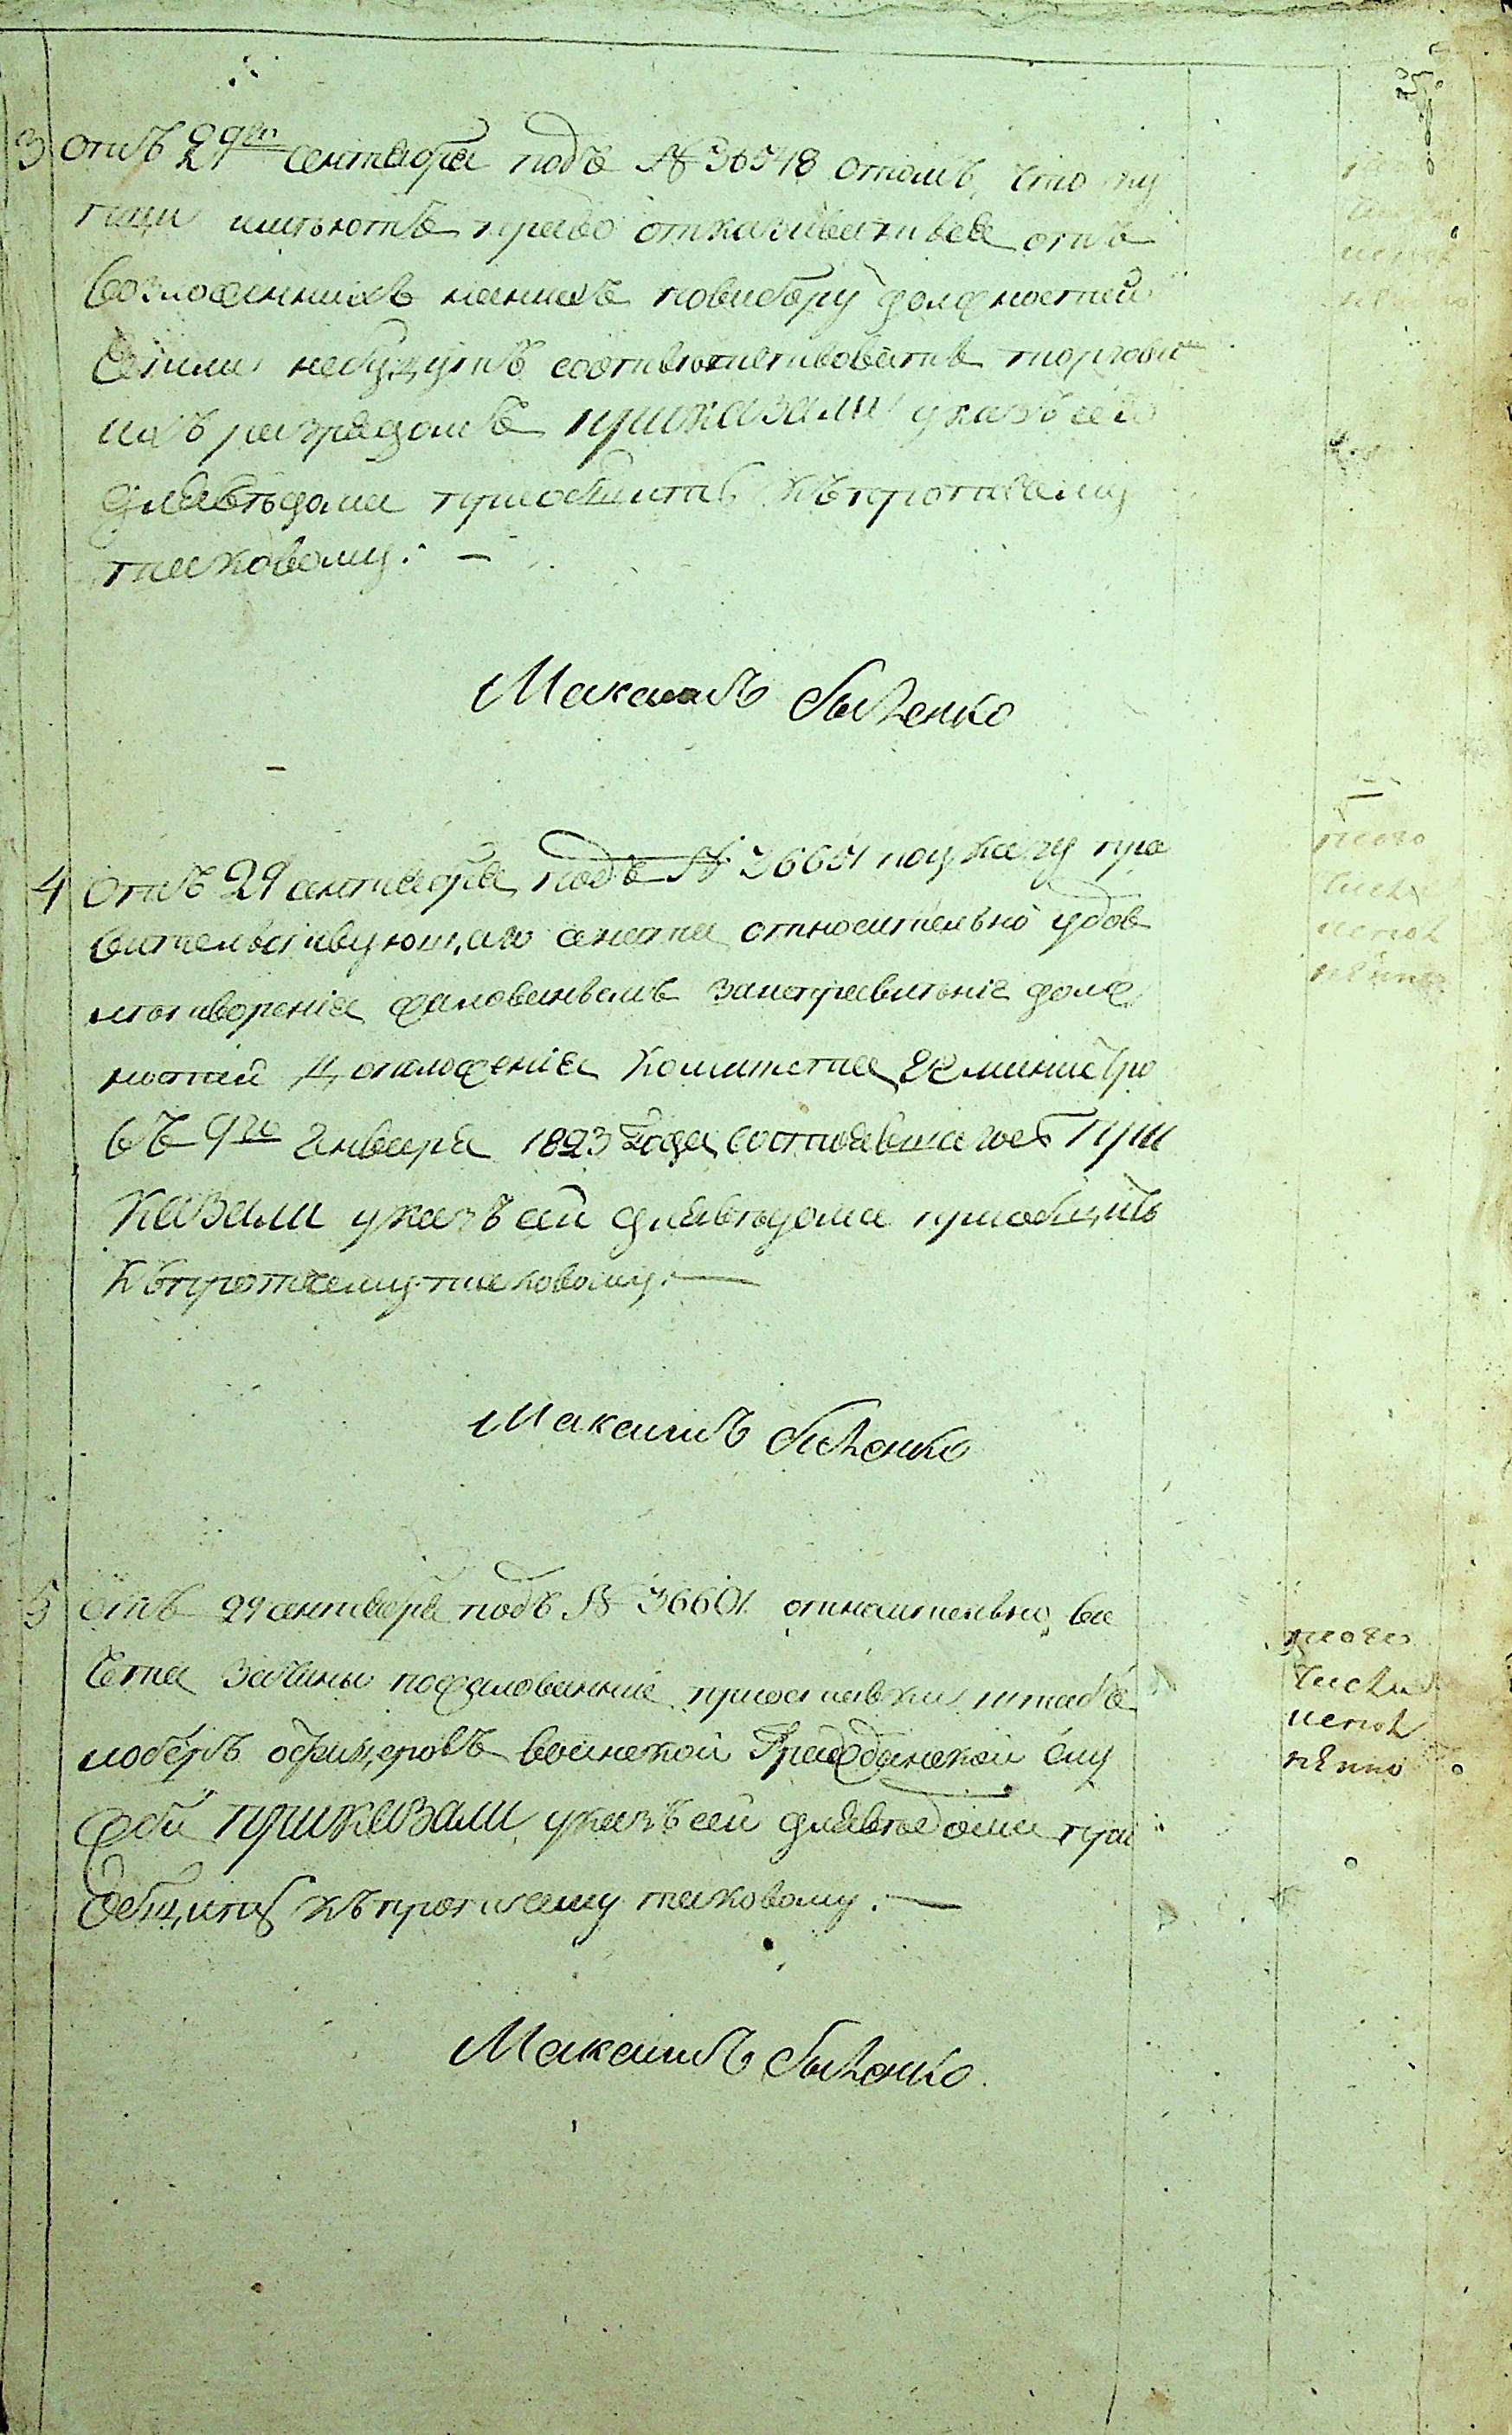 3 Отъ 29го сентября подъ № 36548 отомъ, что ку
пцы имѣютъ право отказыватьса отъ
возложенныхъ нанихъ повыбору должностей
Ежили небудутъ соответствовать торговы
мъ разрядомъ приказали указъ сей
длявѣдома приобщить къпротчему
таковому. —
Максимъ Быченко
4 Отъ 29 сентября подъ № 36651 поуказу пра
вительствующаго сената относительно удов
летворения жалованьемъ заисправление долж
ностей положения комитета гг министро
въ 9го Генваря 1823 года состоявшагось При
казали указъ сей длявѣдома приобщить
къпротчему таковому. —
Максимъ Быченко
5 Отъ 29 сентября подъ № 36601. относительно вы
чета зачины пожалованные приотставки штабъ
иоберъ офицеровъ воинской Гражданской слу
жбы приказали указъ сей длявѣдома при
общить къпротчему таковому. —
Максимъ Быченко
посо
исполнено